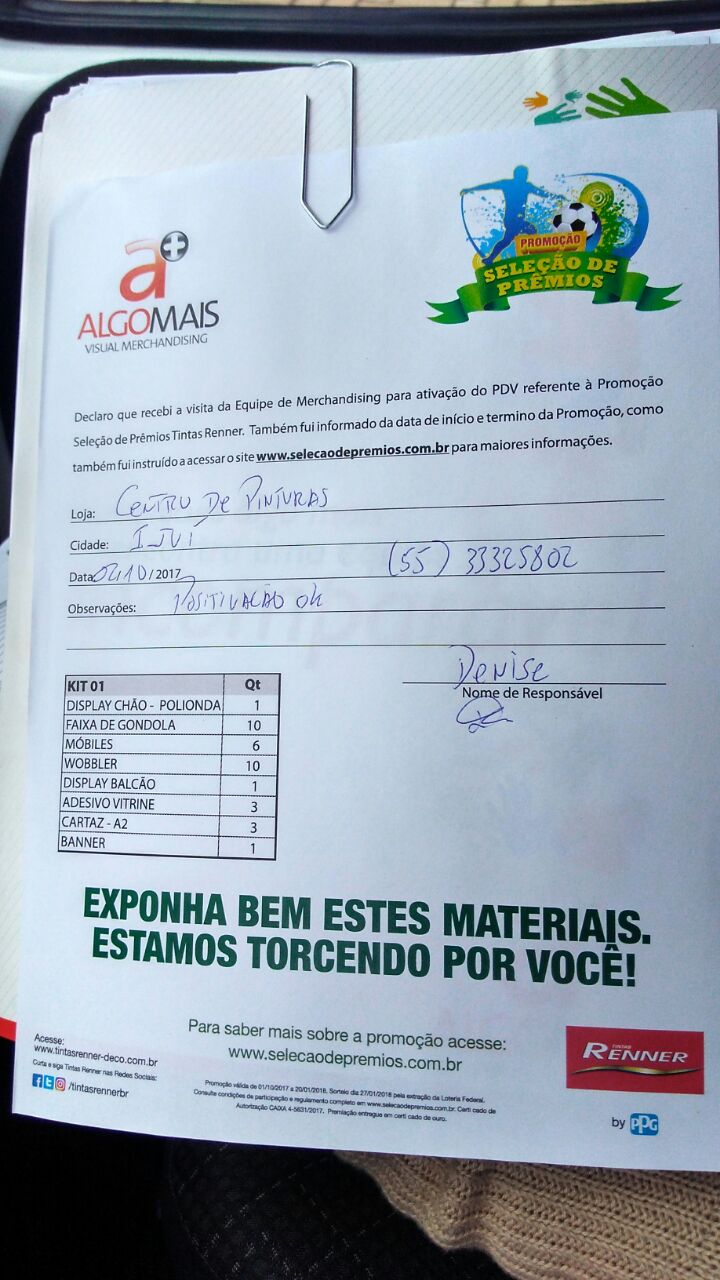 a+
ALGOMAIS
VISUAL MERCHANDISING
PROMOÇÃO
SELEÇÃO DE
PRÊMIOS
Declaro que recebi a visita da Equipe de Merchandising para ativação do PDV referente à Promoção
Seleção de Prêmios Tintas Renner. Também fui informado da data de início e termino da Promoção, como
também fui instruído a acessar o site www.selecaodepremios.com.br para maiores informações.
Loja: CENTRO DE PINTURAS
Cidade: IJUÍ
Data: 02/10/2017 (55) 33325802
Observações: POSITIVAÇÃO OK
DENISE
Nome de Responsável
KIT 01 Qt
DISPLAY CHÃO - POLIONDA 1
FAIXA DE GONDOLA 10
MÓBILES 6
WOBBLER 10
DISPLAY BALCÃO 1
ADESIVO VITRINE 3
CARTAZ - A2 3
BANNER 1
EXPONHA BEM ESTES MATERIAIS.
ESTAMOS TORCENDO POR VOCÊ!
Para saber mais sobre a promoção acesse:
www.selecaodepremios.com.br
Acesse:
www.tintasrenner-deco.com.br
Curta e siga Tintas Renner nas Redes Sociais:
/tintasrennerbr
Promoção válida de 01/10/2017 a 20/01/2018. Sorteio dia 27/01/2018 pela extração da Loteria Federal.
Consulte condições de participação e regulamento completo em www.selecaodepremios.com.br. Certi cado de
Autorização CAIXA 4-5631/2017. Premiação entregue em certi cado de ouro.
TINTAS
RENNER
by PPG